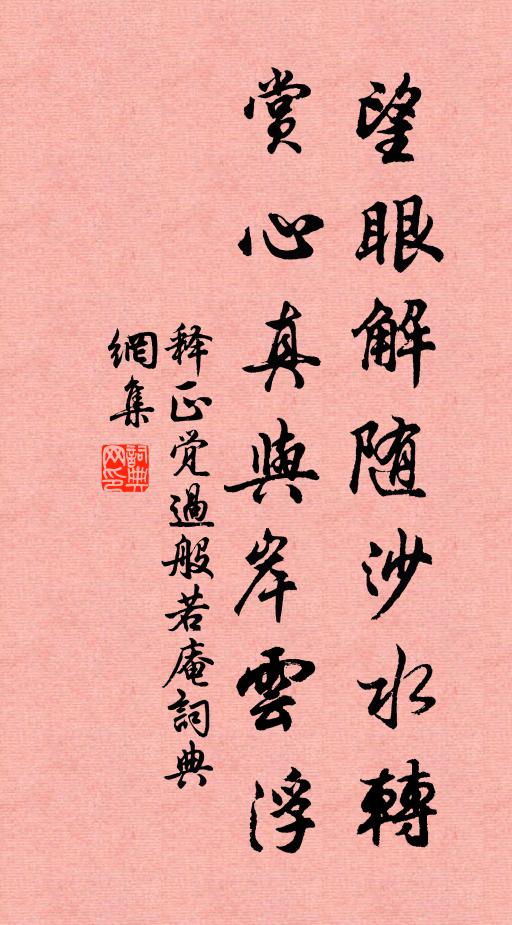 望眼解随沙水轉
賞心真與岸雲浮
释正觉過般若庵詞典
網集
詞典
网印